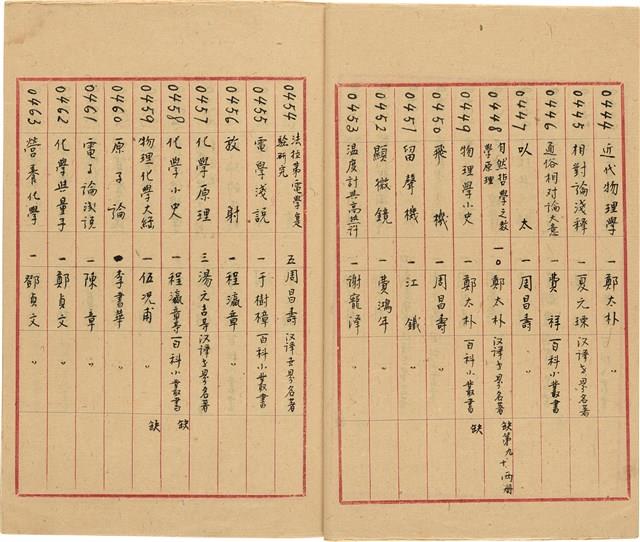 0444 近代物理學 一 鄭太朴 〃
0445 相對論淺釋 一 夏元瑮 汉译世界名著
0446 通俗相对論大意 一 費祥 百科小叢書
0447 以太 一 周昌壽 〃
0448 自然哲学之数學原理 一〇 鄭太朴 汉译世界名著 缺第九、十、两册
0449 物理學小史 一 鄭太朴 百科小叢書 缺
0450 飛機 一 周昌壽 〃
0451 留聲機 一 江鐵 〃
0452 顯微鏡 一 費鴻年 〃
0453 温度計與高热計 一 謝寵澤 〃
0454 法拉第電學實驗研究 五 周昌壽 汉译世界名著
0455 電學淺説 一 于樹樟 百科小叢書
0456 放射 一 程瀛章 〃
0457 化學原理 三 湯元吉等 汉译世界名著
0458 化學小史 一 程瀛章等 百科小叢書 缺
0459 物理化學大綱 一 伍况甫 〃 缺
0460 原子論 李書華 〃
0461 電子論淺说 一 陳章 〃
0462 化學與量子 一 鄭貞文 〃
0463 營養化學 一 鄧貞文 〃